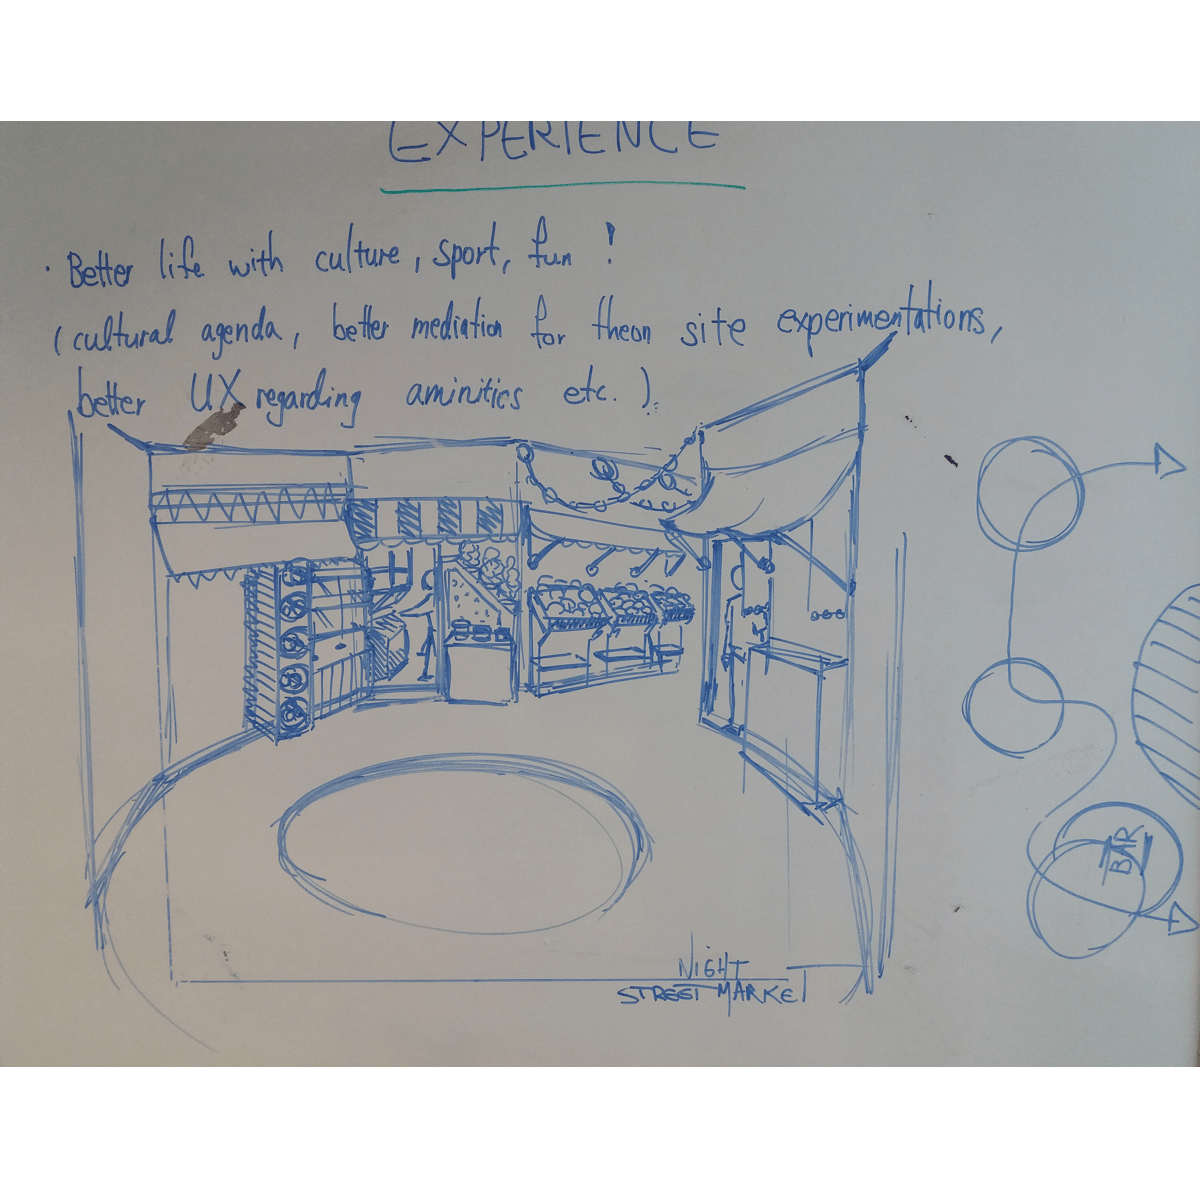 EXPERIENCE
· Better life with culture, sport, fun !
(cultural agenda, better mediation for theon site experimentations,
better UX regarding aminitics etc. ).
BAR
NIGHT
STREET MARKET